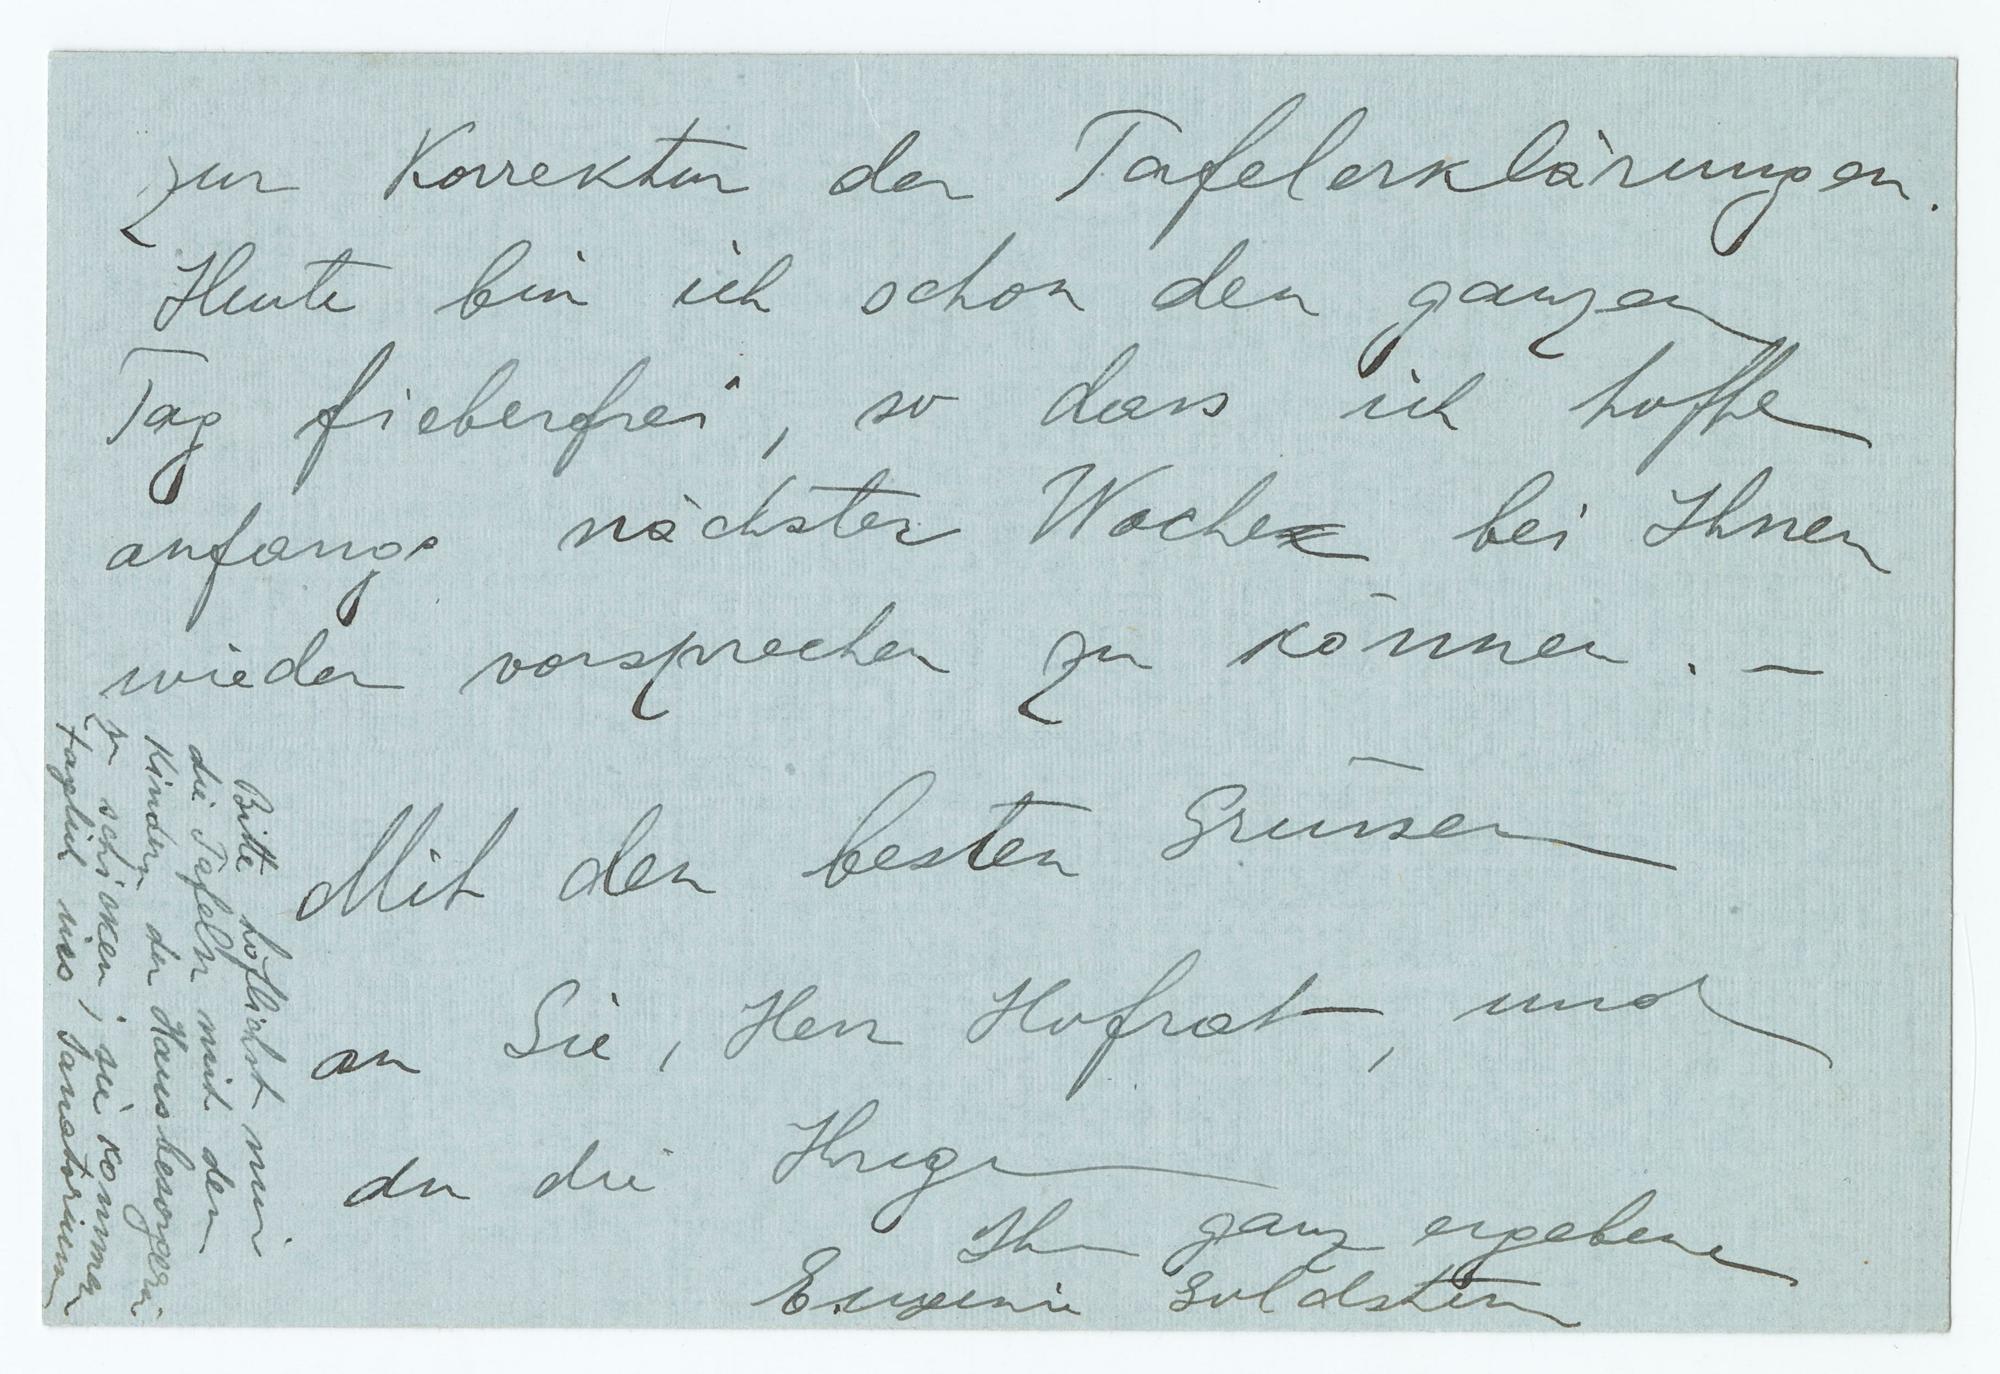 zur Korrektur der Tafelerklärungen.
Heute bin ich schon den ganzen
Tag fieberfrei, so dass ich hoffe
anfangs nächster Woche bei Ihnen
wieder vorsprechen zu können. —
Mit den besten Grüssen
an Sie, Herr Hofrat, und
an die Ihrigen
Ihre ganz ergebene
Eugenie Goldstern
Bitte höflichst mir
die Tafeln mit den
Kindern der Hausbesorgerin
zu schicken; sie kommen
täglich ins Sanatorium